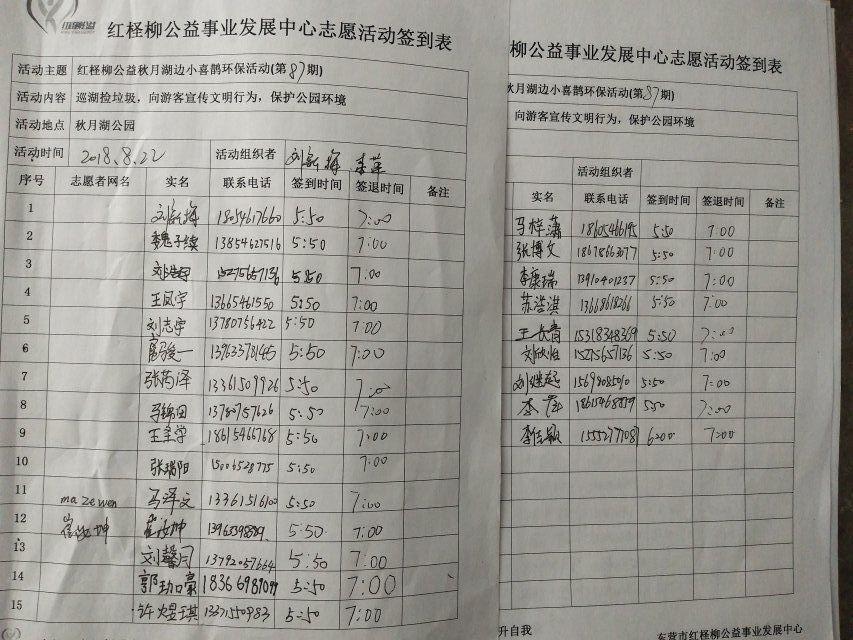 红柽柳公益事业发展中心志愿活动签到表
活动主题 红柽柳公益秋月湖边小喜鹊环保活动(第87期)
活动内容 巡湖捡垃圾，向游客宣传文明行为，保护公园环境
活动地点 秋月湖公园
活动时间 2018.8.22 活动组织者 刘新梅 李萍
序号 志愿者网名 实名 联系电话 签到时间 签退时间 备注
1 刘新梅 18054617660 5:50 7:00
2 魏子续 13854627516 5:50 7:00
3 15275657136 5:50 7:00
4 王凤宇 13665461550 5:50 7:00
5 刘志宇 13780756422 5:50 7:00
6 5:50 7:00
7 张芮泽 13361509926 5:50 7:00
8 5:50 7:00
9 18615466768 5:50 7:00
10 张瑞阳 15006528775 5:50 7:00
11 ma ze wen 马泽文 13361516100 5:50 7:00
12 崔汝坤 崔汝坤 5:50 7:00
13 刘馨 13792057664 5:50 7:00
14 5:50 7:00
15 许煜琪 13371550983 5:50 7:00
柳公益事业发展中心志愿活动签到表
秋月湖边小喜鹊环保活动(第87期)
向游客宣传文明行为，保护公园环境
活动组织者
实名 联系电话 签到时间 签退时间 备注
马梓潇 18605466195 5:50 7:00
张博文 18678663077 5:50 7:00
李康瑞 13910401237 5:50 7:00
苏洪淇 13668618266 5:50 7:00
王长青 15318348369 5:50 7:00
刘欣怡 15275657136 5:50 7:00
刘继起 15698085010 5:50 7:00
李萍 5:50 7:00
李佳颖 6:00 7:00
升自我
东营市红柽柳公益事业发展中心